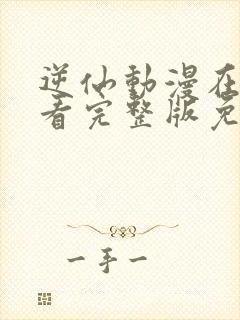 逆仙動漫在
看完整版免
一手一